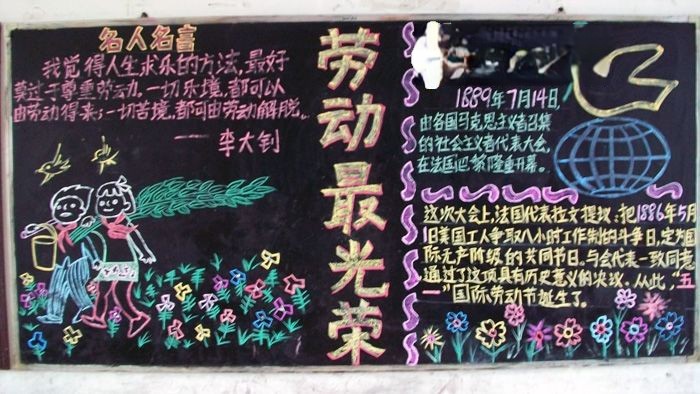 名人名言
我觉得人生求乐的方法,最好
莫过于尊重劳动。一切乐境,都可以
由劳动得来;一切苦境,都可由劳动解脱。
——李大钊
劳动最光荣
1889年7月14日,
由各国马克思主义者召集
的社会主义者代表大会,
在法国巴黎隆重开幕。
这次大会上,法国代表拉文提议:把1886年5月
1日美国工人争取八小时工作制的斗争日,定为国
际无产阶级的共同节日。与会代表一致同意
通过了这项具有历史意义的决议。从此,“五
一”国际劳动节诞生了。